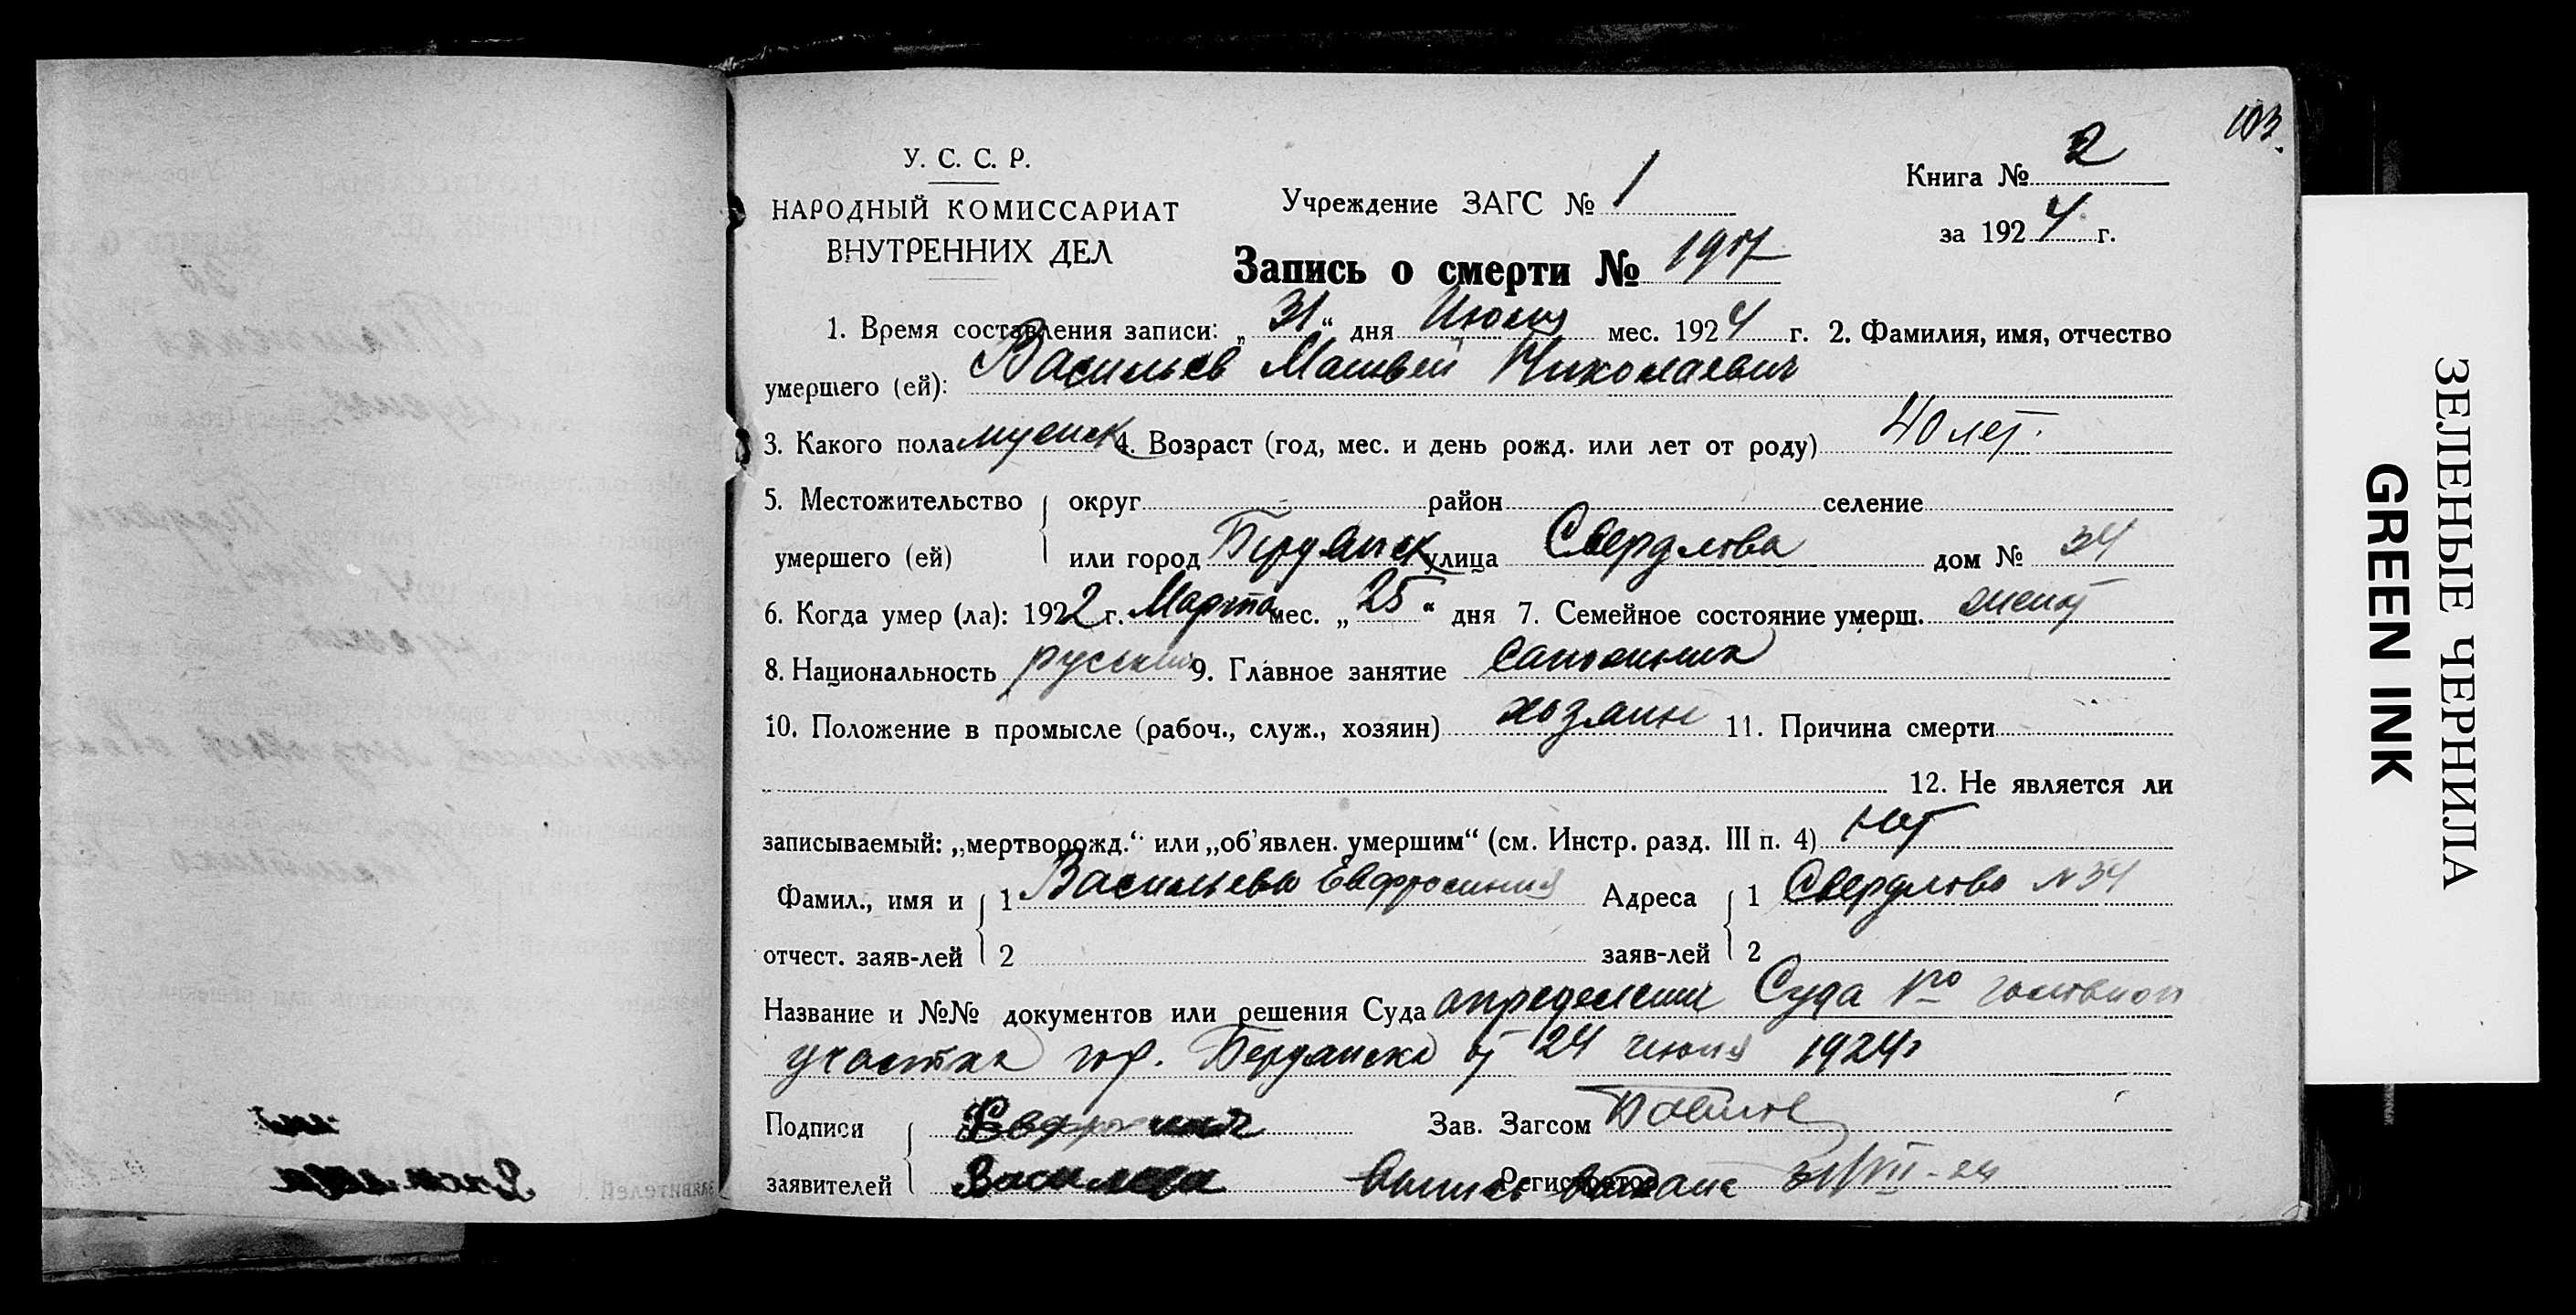 103.
У. С. С. Р.
НАРОДНЫЙ КОМИССАРИАТ
ВНУТРЕННИХ ДЕЛ
Учреждение ЗАГС № 1
Книга № 2
за 1924 г.
Запись о смерти № 197
1. Время составления записи: „31“ дня Июля мес. 1924 г. 2. Фамилия, имя, отчество
умершего (ей): Васильев Матвей Николаевич
3. Какого пола мужск 4. Возраст (год, мес. и день рожд. или лет от роду) 40 лет.
5. Местожительство округ район селение
умершего (ей) или город Бердянск улица Свердлова дом № 34
6. Когда умер (ла): 1922 г. Марта мес. „25“ дня 7. Семейное состояние умерш. женат
8. Национальность русский 9. Главное занятие сапожник
10. Положение в промысле (рабоч., служ., хозяин) хозяин 11. Причина смерти
12. Не является ли
записываемый: „мертворожд.“ или „об’явлен. умершим“ (см. Инстр. разд. III п. 4) нет
Фамил., имя и 1 Васильева Евфросиния Адреса 1 Свердлова № 34
отчест. заяв-лей 2 заяв-лей 2
Название и №№ документов или решения Суда определение Суда 1го
участка гор. Бердянска от 24 июня 1924г
Подписи Евфросиния Зав. Загсом
заявителей Васильева Регистратор Выпись выдана 31/VII-24
ЗЕЛЕНЫЕ ЧЕРНИЛА
GREEN INK